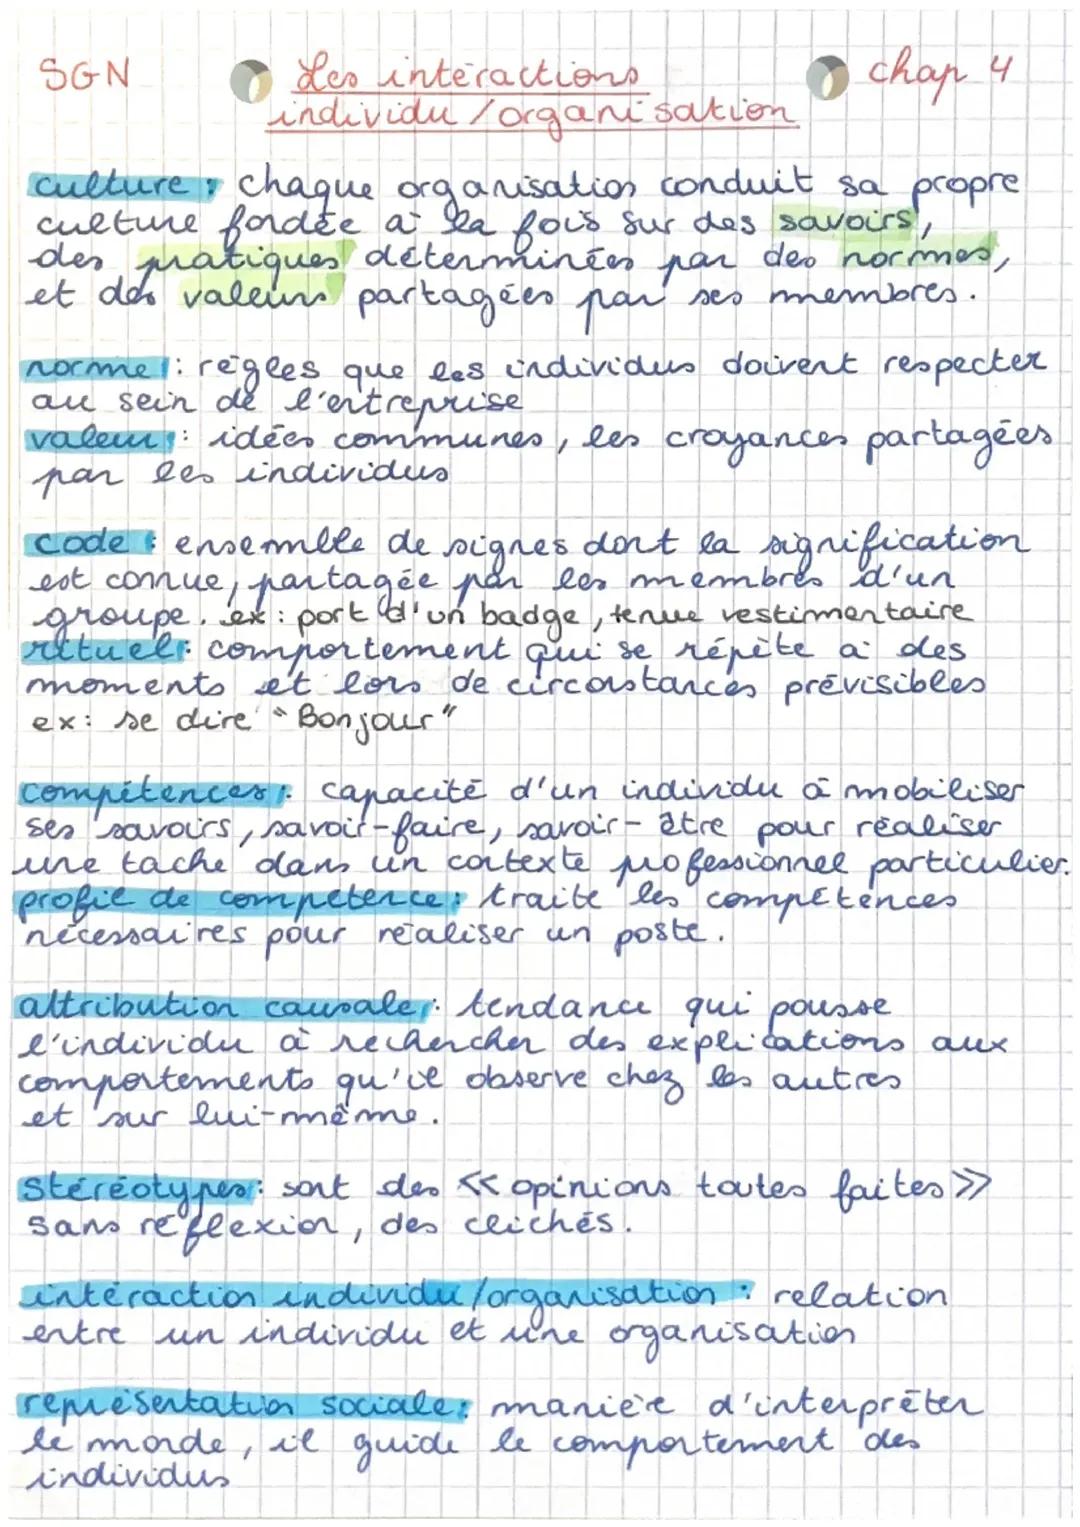 SGN
Les intéractions
chap 4
individu / organisation
culture : chaque organisation conduit sa propre
culture fondée à la fois sur des savoirs,
des pratiques déterminées par des normes,
et des valeurs partagées par ses membres.
norme : règles que les individus doivent respecter
au sein de l'entreprise
valeur : idées communes, les croyances partagées
par les individus
code : ensemble de signes dont la signification
est connue, partagée par les membres d'un
groupe. ex : port d'un badge, tenue vestimentaire
rituel : comportement qui se répète à des
moments et lors de circonstances prévisibles
ex : se dire "Bonjour"
compétences : capacité d'un individu à mobiliser
ses savoirs, savoir-faire, savoir-être pour réaliser
une tache dans un contexte professionnel particulier.
profil de compétence : traite les compétences
nécessaires pour réaliser un poste.
attribution causale : tendance qui pousse
l'individu à rechercher des explications aux
comportements qu'il observe chez les autres
et sur lui-même.
Stéréotypes : sont des << opinions toutes faites >>
sans réflexion, des clichés.
intéraction individu/organisation : relation
entre un individu et une organisation
représentation sociale : manière d'interpréter
le monde, il guide le comportement des
individus